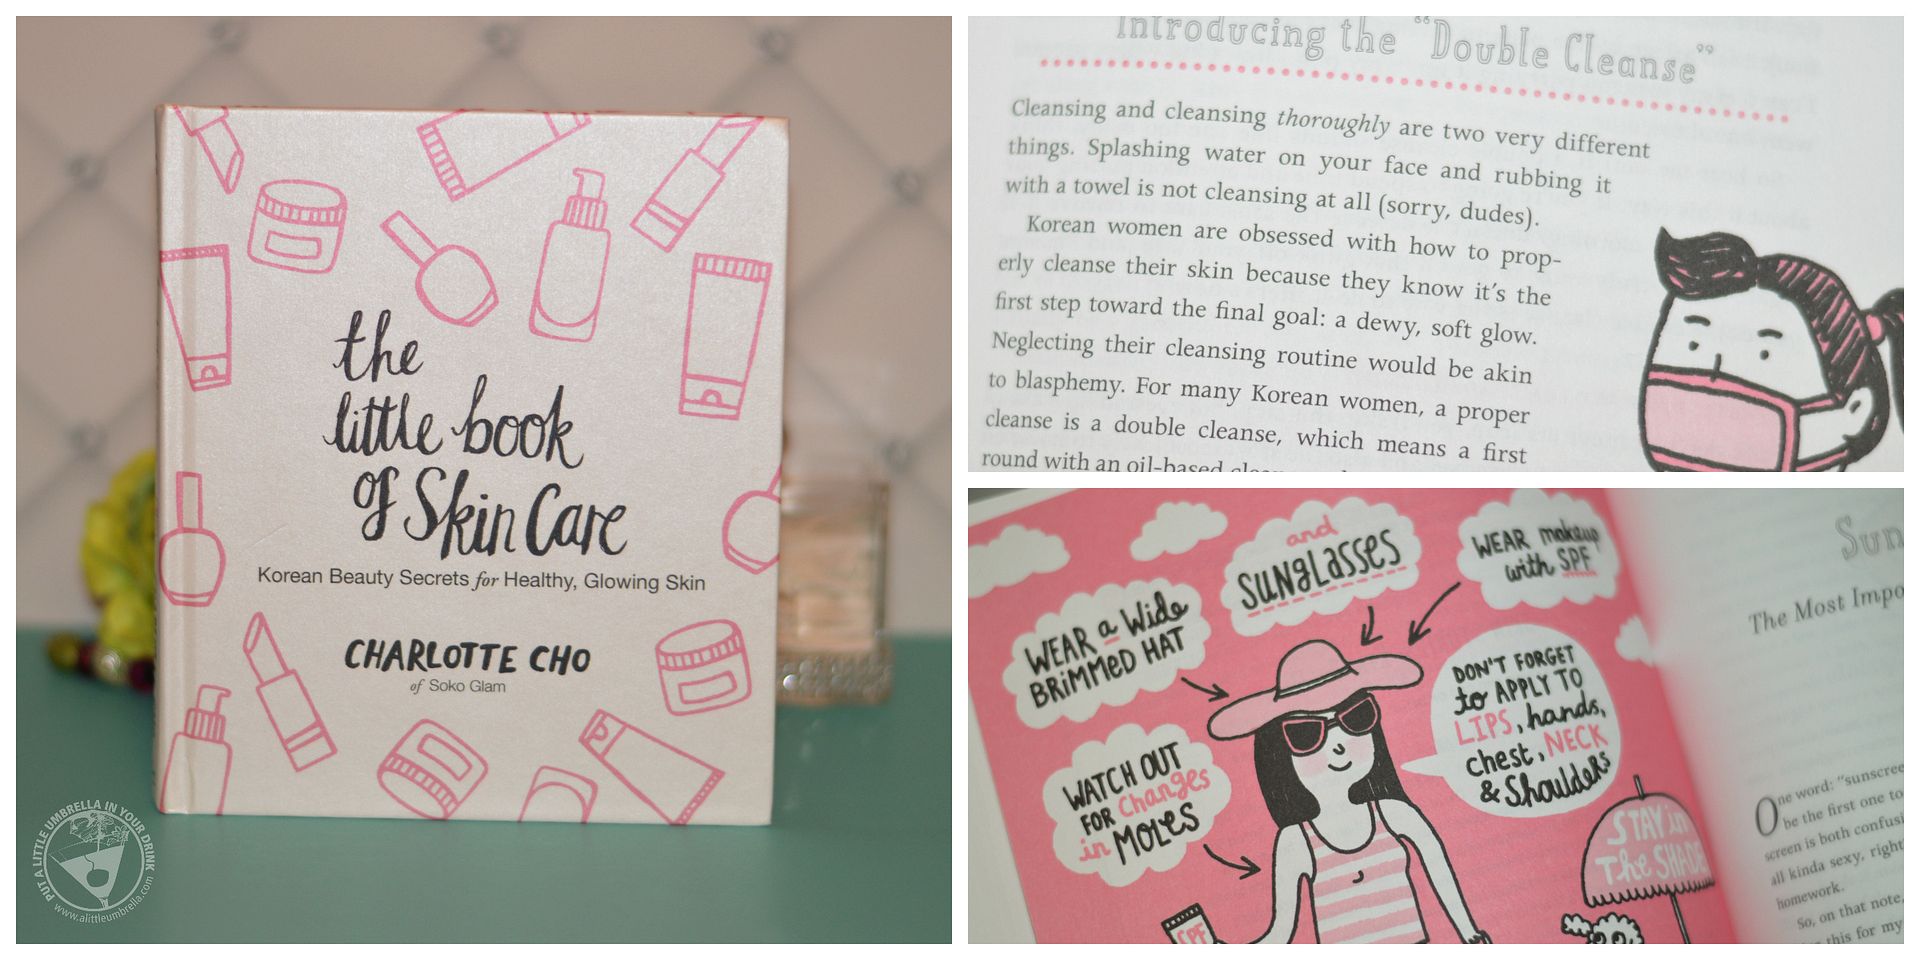 the
little book
of Skin Care
Korean Beauty Secrets for Healthy, Glowing Skin
CHARLOTTE CHO
of Soko Glam
PUT A LITTLE UMBRELLA IN YOUR DRINK
www.alittleumbrella.com
Introducing the “Double Cleanse”
Cleansing and cleansing thoroughly are two very different
things. Splashing water on your face and rubbing it
with a towel is not cleansing at all (sorry, dudes).
Korean women are obsessed with how to prop-
erly cleanse their skin because they know it’s the
first step toward the final goal: a dewy, soft glow.
Neglecting their cleansing routine would be akin
to blasphemy. For many Korean women, a proper
cleanse is a double cleanse, which means a first
round with an oil-based
and
SUNGLASSES
WEAR makeup
with SPF
WEAR a Wide
BRIMMED HAT
DON'T FORGET
to APPLY TO
LIPS, hands,
chest, NECK
& Shoulders
WATCH OUT
FOR changes
in MOLES
SPF
STAY in
the SHADE
Sun
The Most Impo
One word: “sunscree
be the first one to
screen is both confusi
all kinda sexy, right
homework.
So, on that note,
this for my